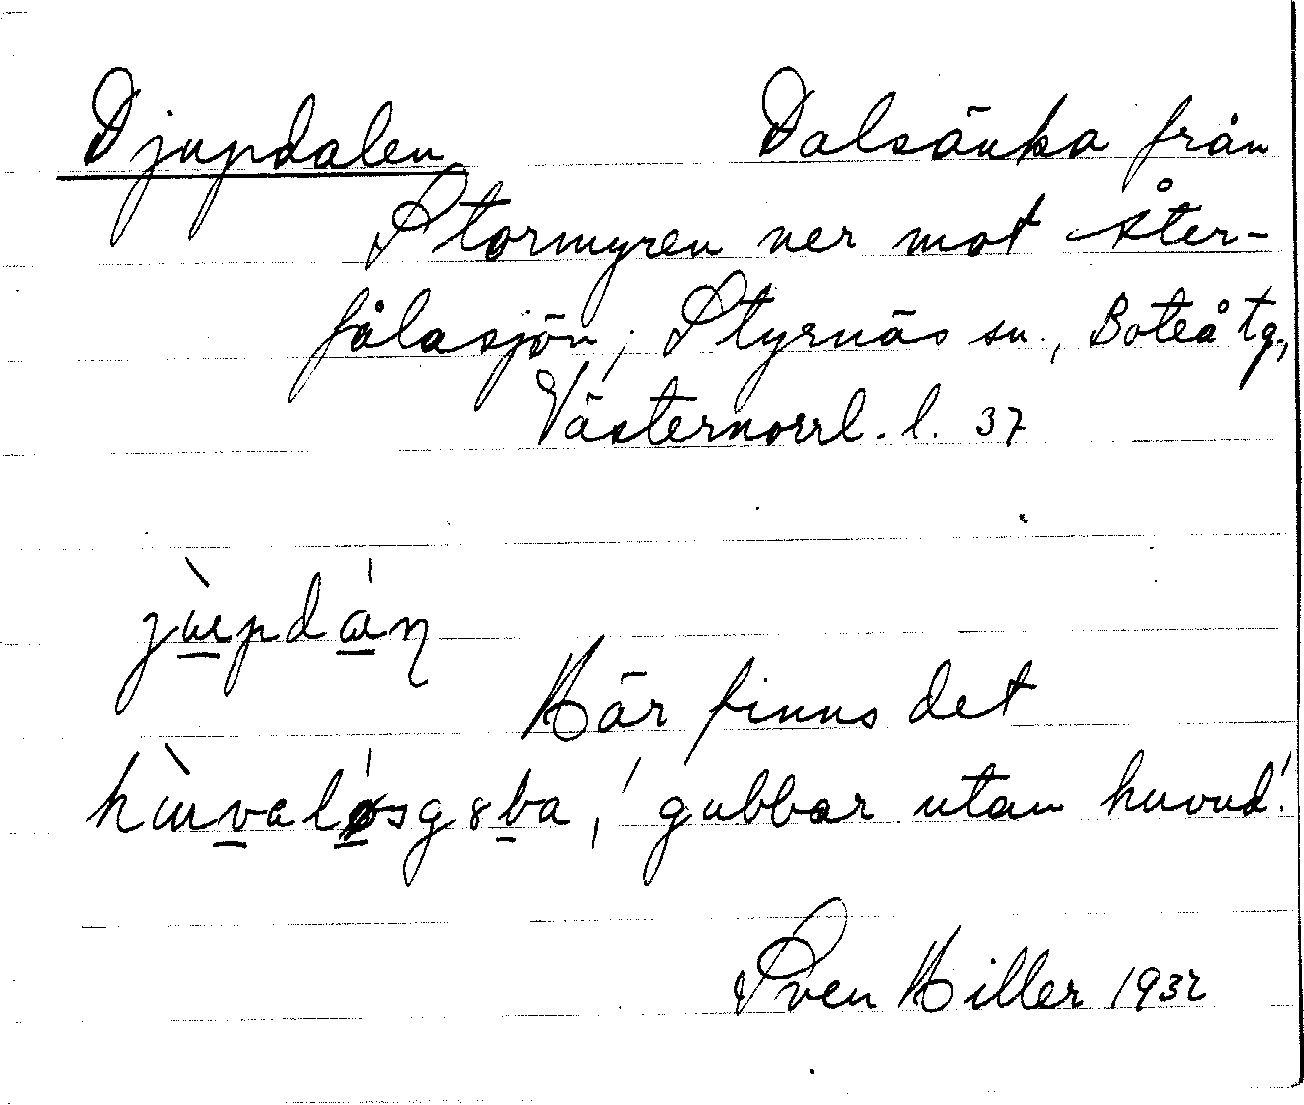 Djupdalen Dalsänka från
Stormyren ner mot Åter-
fålasjön; Styrnäs sn., Boteå tg.,
Västernorrl. l. 37
jùpdáņ
Här finns det
'gubbar utan huvud'.
Sven Hiller 1932